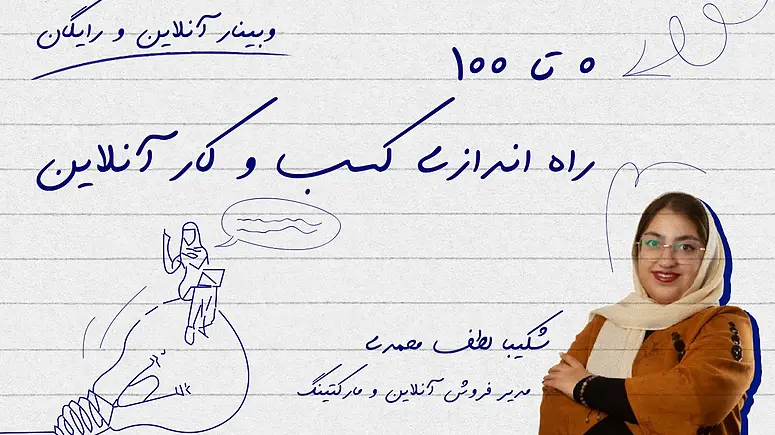 وبینار آنلاین و رایگان
۰ تا ۱۰۰
راه اندازی کسب و کار آنلاین
شکیب لطف محمدی
مدیر فروش آنلاین و مارکتینگ